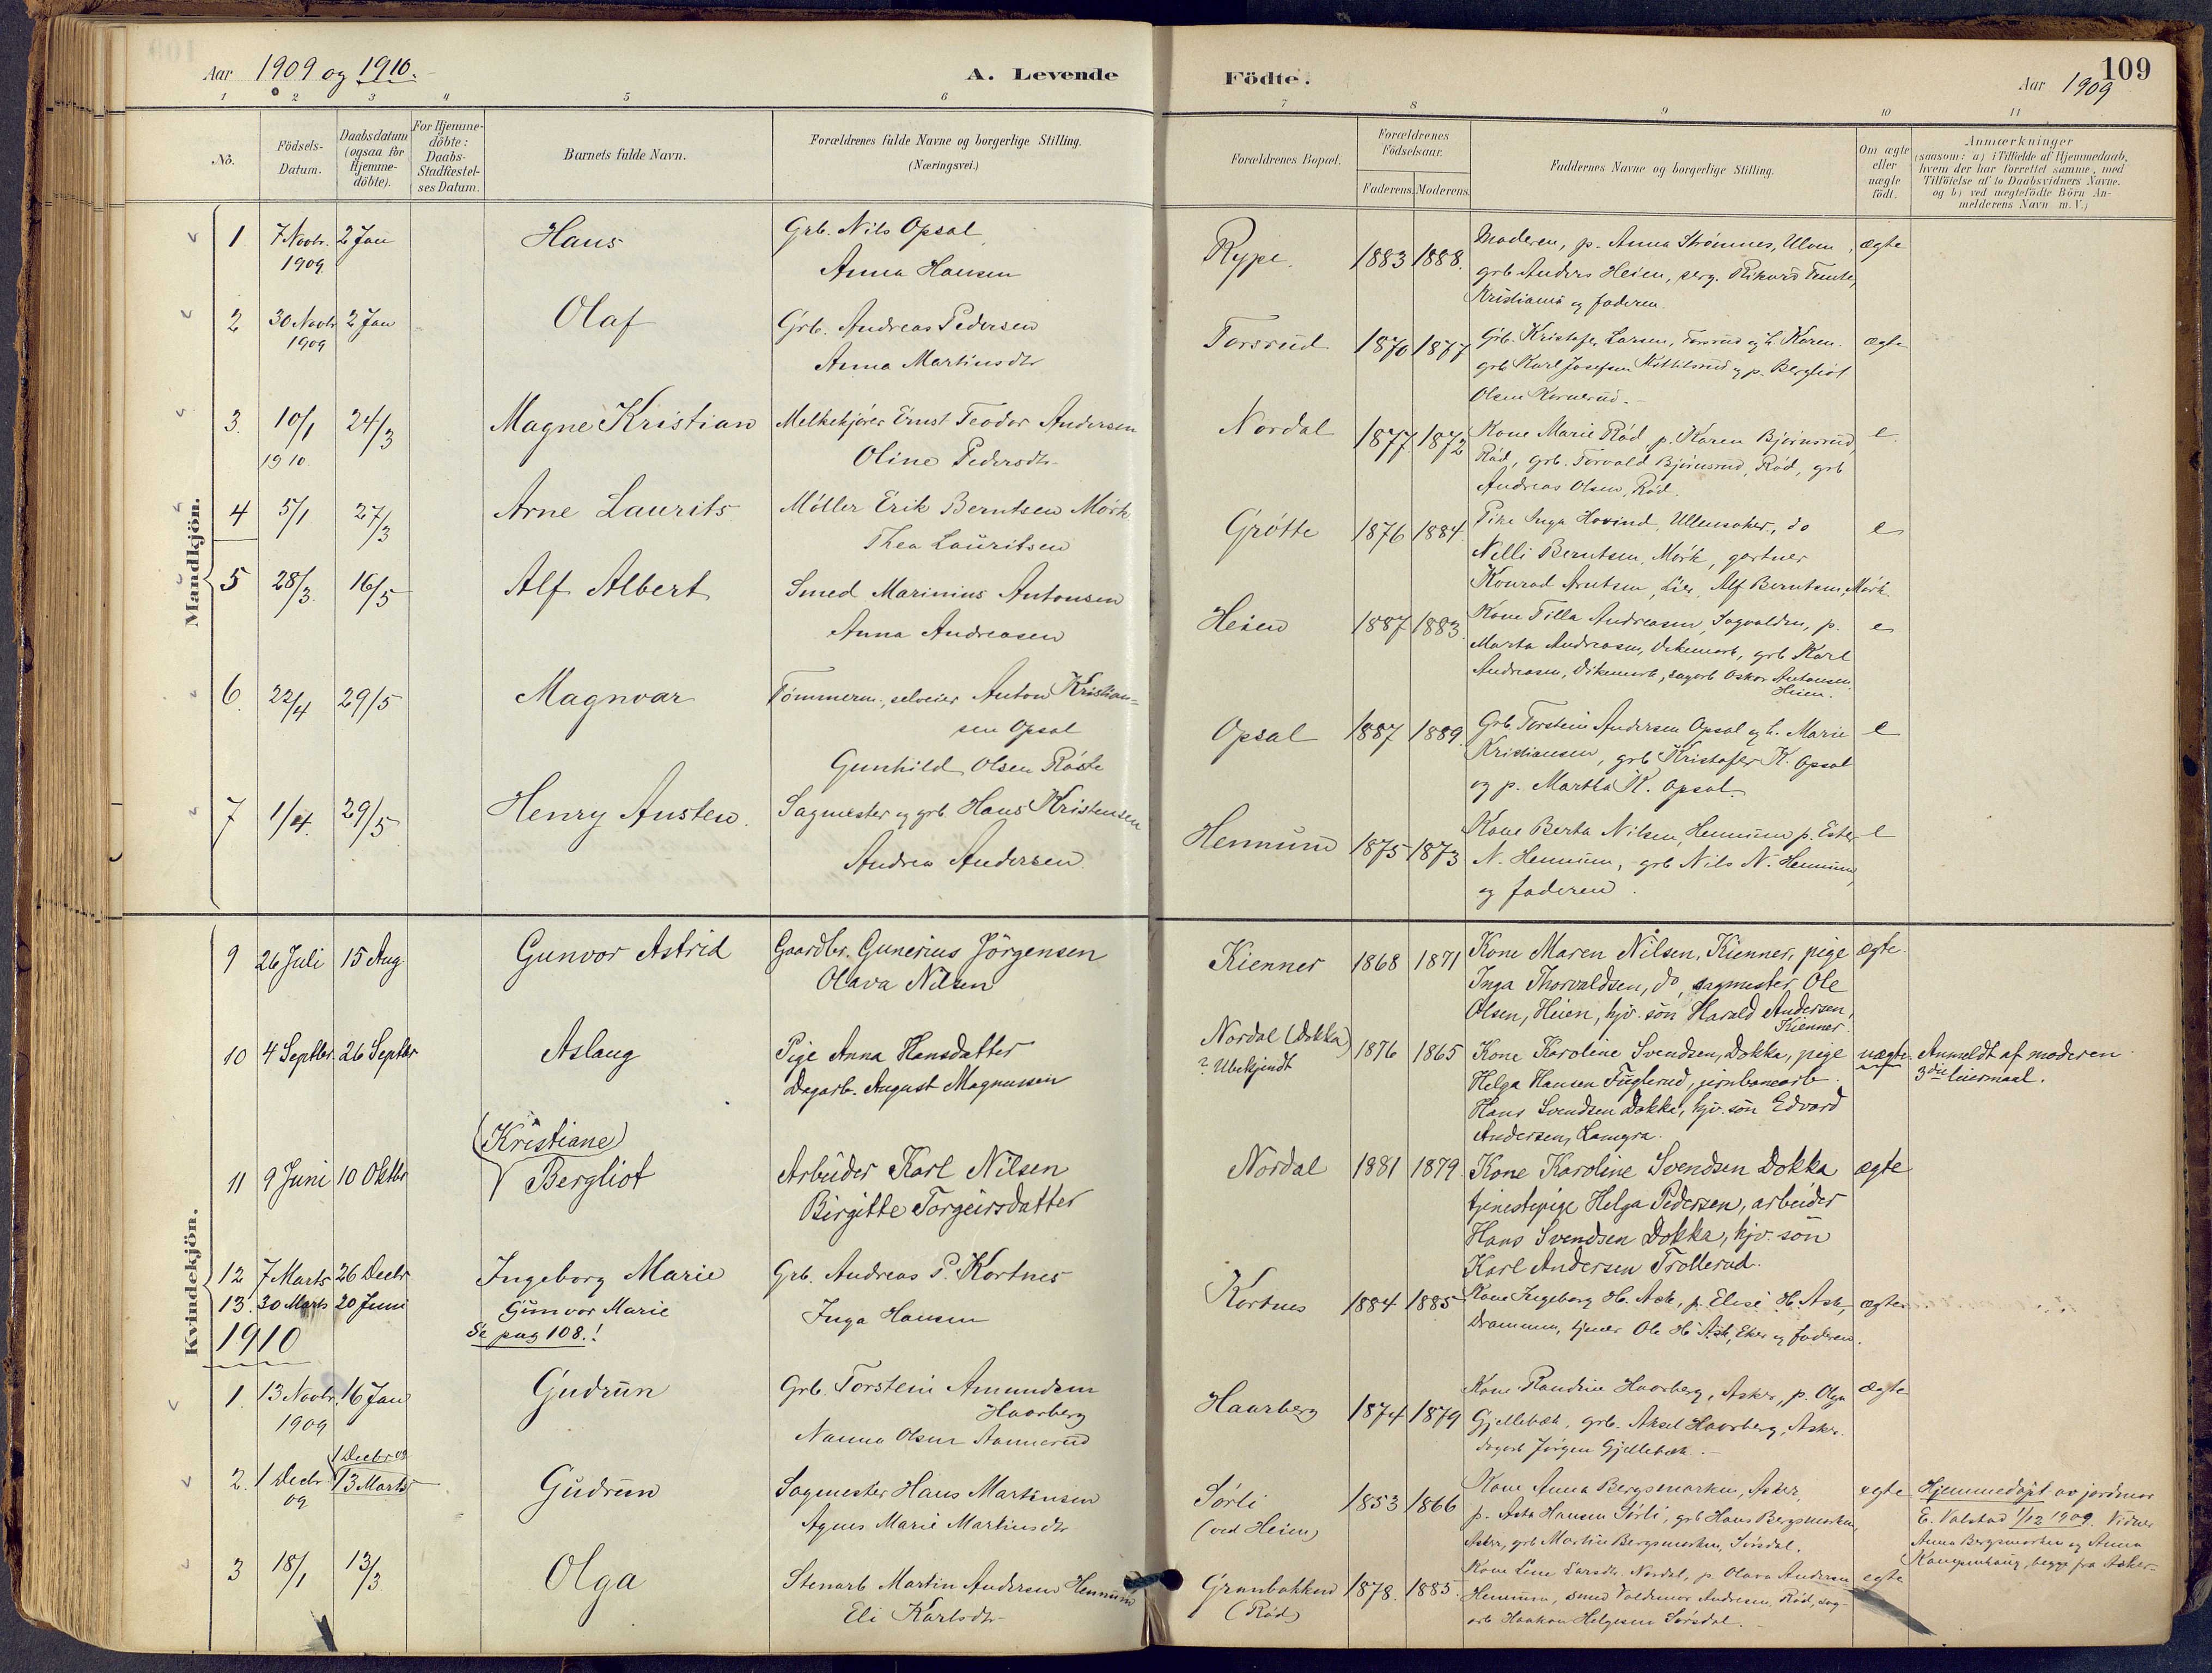 Aar 1909 og 1910.
A. Levende Födte.
109
Aar 1909
1 2 3 4 5 6 7 8 9 10 11
No.
Födsels-Datum.
Daabsdatum (ogsaa for Hjemme-döbte).
For Hjemme-döbte: Daabs-Stadfæstel-ses Datum.
Barnets fulde Navn.
Forældrenes fulde Navne og borgerlige Stilling.
(Næringsvei.)
Forældrenes Bopæl.
Forældrenes Födselsaar.
Faderens. Moderens.
Faddernes Navne og borgerlige Stilling.
Om ægte eller uægte födt.
Anmærkninger
(saasom: a) i Tilfælde af Hjemmedaab,
hvem der har forrettet samme, med
Tilföielse af to Daabsvidners Navne.
og b) ved uægtefödte Börn An-
melderens Navn m.V.)
Mandkjön.
1 7 Novbr. 2 Jan Hans Grb. Nils Opsal Rype. 1883 1888. Moderen, p. Anna Strømnes, Ulven, ægte
1909. Anna Hansen grb Anders Heien,
Kristiania og faderen
2 30 Novbr 2 Jan Olaf Grb. Andreas Pedersen Torsrud 1870 1877 Grb. Kristofer Larsen, Torsrud og h. Karen. ægte
1909 Anna Martinsdtr grb Karl Josefsen og p. Bergliot
Olsen
3. 10/1 24/3 Magne Kristian Melkekjører Ernst Teodor Andersen Nordal 1877 1872 Kone Marie Röd p. Karen Björnsrud, e.
1910. Oline Pedersdtr Röd, grb. Torvald Björnsrud, Röd, grb
Andreas Olsen, Röd.
4 5/1 27/3 Arne Laurits Møller Erik Berntsen Mørk Grøtte 1876 1884. Pike Inga Hovind, Ullensaker, do e
Thea Lauritsen Nelli Berntsen, Mørk, gartner
Konrad Arntsen, Lier, Alf Berntsen, Mørk.
5 28/3. 16/5 Alf Albert Smed Marinius Antonsen Heien 1887 1883. Kone Tilla Andreasen, p. e
Anna Andreasen Marta Andreasen, Dikemark, grb Karl
Andreasen, Dikemark, sagarb Oskar Antonsen
Heien.
6. 22/4 29/5 Magnvar Tömmerm., selveier Anton Kristian- Opsal 1887 1889. Grb. Torstein Andersen Opsal og h. Marie e
sen Opsal Kristiansen, grb Kristofer K. Opsal
Gunhild Olsen Røste og p. Martha K. Opsal.
7 1/4. 29/5 Henry Austen. Sagmester og grb. Hans Kristensen Hennum 1875 1873 Kone Berta Nilsen, Hennum p. Ester e
Andrea Andersen. N. Hennum, grb Nils N. Hennum,
og faderen.
Kvindekjön.
9 26 Juli 15 Aug. Gunvor Astrid Gaardbr. Gunerius Jörgensen Kienner 1868 1871 Kone Maren Nilsen, Kienner, pige ægte.
Olava Nilsen Inga Thorvaldsen, do, sagmester Ole
Olsen, Heien, hjv. sön Harald Andersen,
Kienner.
10 4 Septbr. 26 Septbr Aslaug Pige Anna Hansdatter Nordal (Dokka) 1876 1865 Kone Karoline Svendsen, Dokka, pige uægte. Anmeldt af moderen.
Dagarb. August Magnussen ? Ubekjendt Helga Hansen Fuglerud, jernbanearb. 3die leiermaal.
Hans Svendsen Dokka, hjv. sön Edvard
Andersen,
(Kristiane)
11 9 Juni 10 Oktbr Bergliot Arbeider Karl Nilsen Nordal 1881 1879. Kone Karoline Svendsen Dokka ægte
Birgitte Torgeirsdatter tjenestepige Helga Pedersen, arbeider
Hans Svendsen Dokka, hjv. sön
Karl Andersen Trollerud.
12 7 Marts 26 Decbr Ingeborg Marie Grb. Andreas P. Kortnes Kortnes 1884 1885 Kone Ingeborg H. Ask, p. Elise H. Ask, ægte
13. 30 Marts 20 Juni Gunvor Marie Inga Hansen Drammen, tjener Ole H. Ask, Eker og faderen.
Se pag 108.!
1910
1. 13 Novbr. 16 Jan Gudrun Grb. Torstein Amundsen Haarberg 1874 1879 Kone Randine Haarberg, Asker, p. Olga ægte
1909 Haarberg Gjellebæk, grb. Aksel Haarberg, Asker.
Nanna Olsen Aamerud dagarb Jörgen Gjellebæk.
1 Decbr 09
2. 1 Decbr 13 Marts Gudrun Sagmester Hans Martinsen Sørli 1853 1866 Kone Anna Bergsmarken, Asker, ægte Hjemmedøpt av jordmor
09 Agnes Marie Martinsdtr (ved Heien) p. Asta Hansen Sørli, grb Hans Bergsmarken, E. Valstad 1/12 1909. Vidner
Asker, grb Martin Bergsmarken, Sørsdal. Anna Bergsmarken og Anna
begge fra Asker.
3 18/1 13/3 Olga Stenarb Martin Andersen Hennum Grønbakken 1878. 1885. Kone Line Larsdtr. Nordal, p. Olava Andersen ægte
Eli Karlsdtr (Röd) Hennum, smed Valdemar Andresen, Röd, sag-
arb Haakon Helgesen Sørsdal.